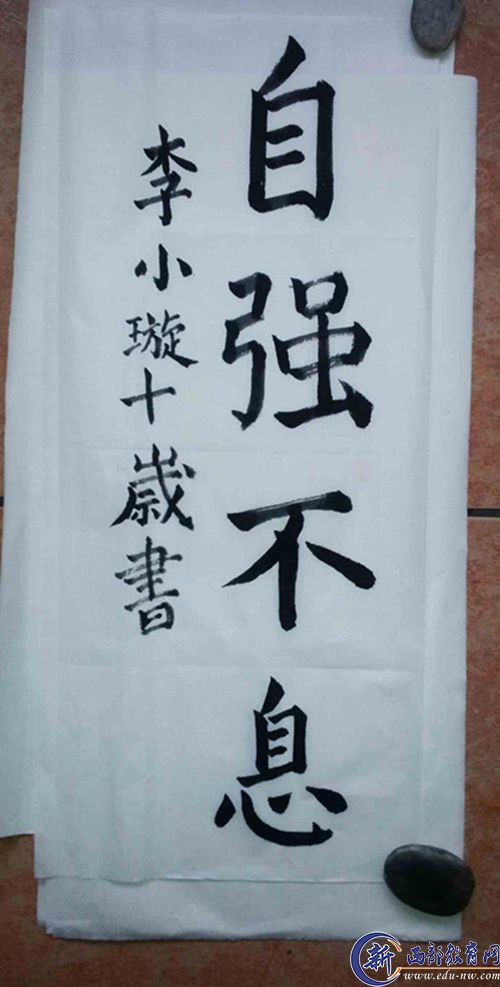 自强不息
李小璇十歲書
新 西部教育网
www.edu-nw.com